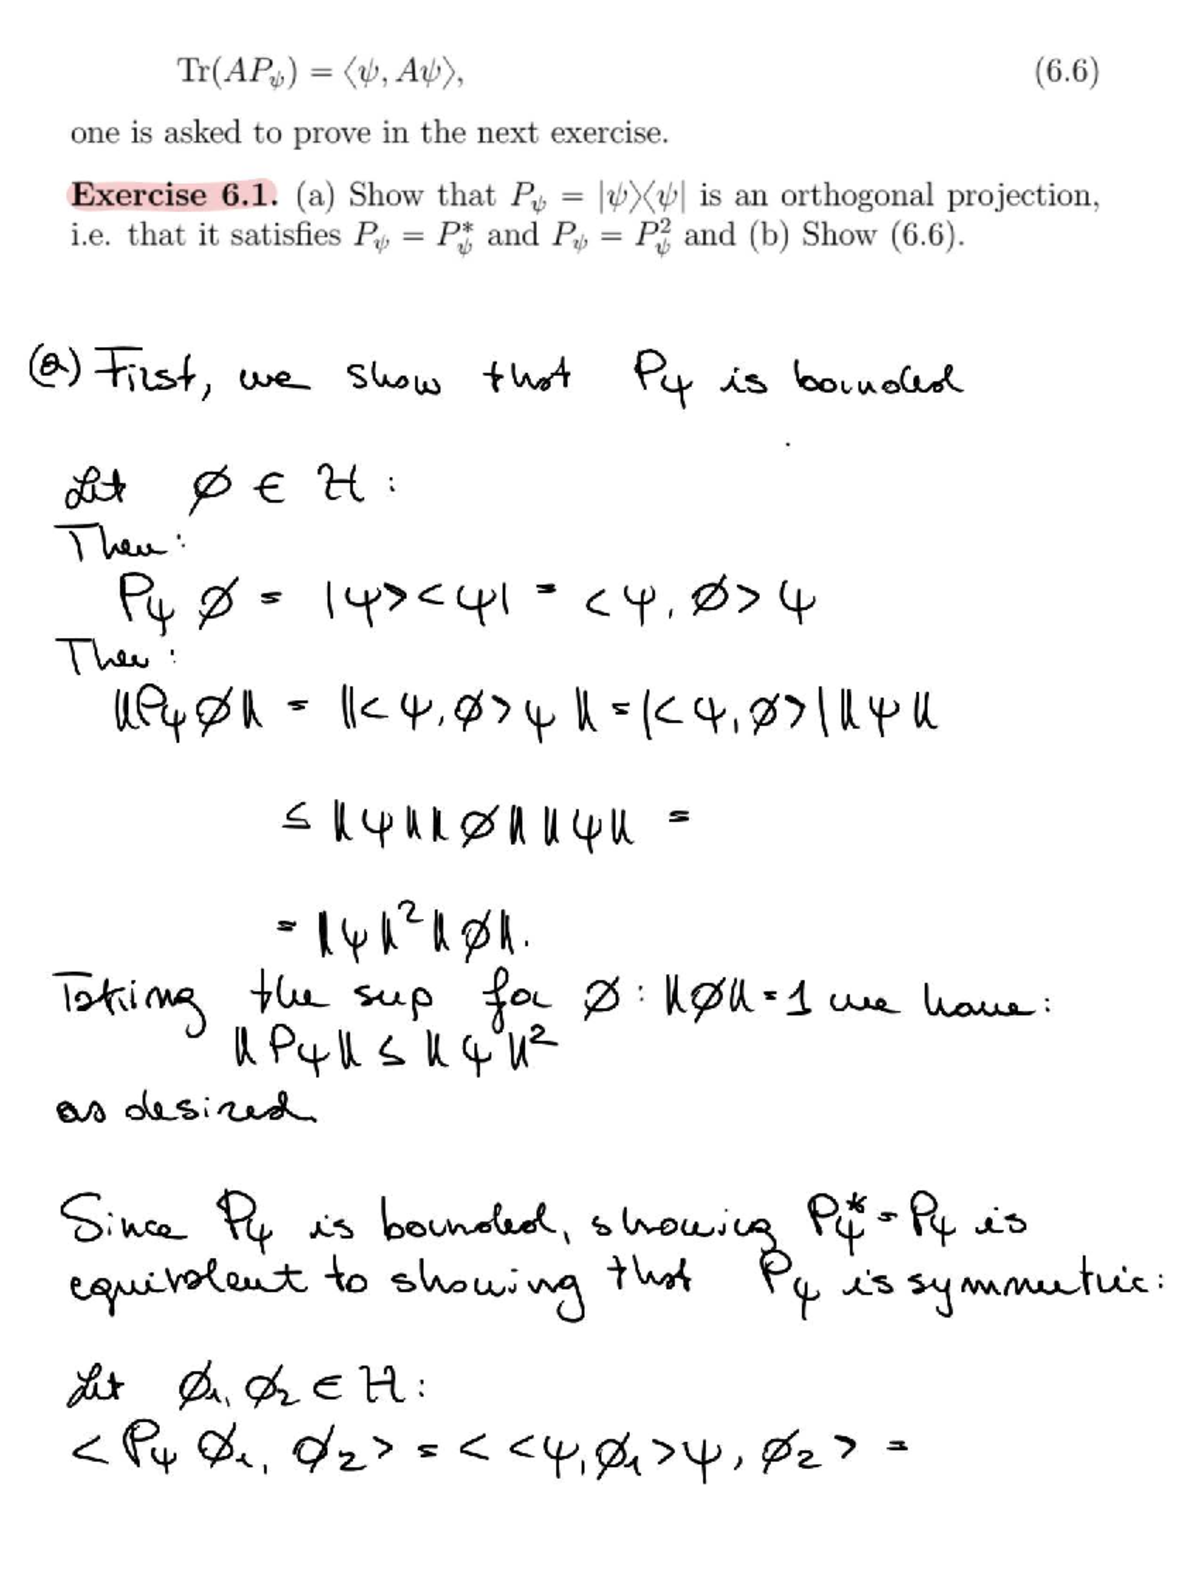 Tr(APψ) = ⟨ψ, Aψ⟩, (6.6)
one is asked to prove in the next exercise.
Exercise 6.1. (a) Show that Pψ = |ψ⟩⟨ψ| is an orthogonal projection,
i.e. that it satisfies Pψ = P*ψ and Pψ = P²ψ and (b) Show (6.6).
(a) First, we show that Pψ is bounded
Let ø ∈ H :
Then :
Pψ ø = |ψ><ψ| = <ψ, ø> ψ
Then :
||Pψ ø|| = ||<ψ, ø> ψ|| = |<ψ, ø>| ||ψ||
≤ ||ψ|| ||ø|| ||ψ|| =
= ||ψ||² ||ø||.
Taking the sup for ø : ||ø|| = 1 we have :
||Pψ|| ≤ ||ψ||²
as desired.
Since Pψ is bounded, showing Pψ* = Pψ is
equivalent to showing that Pψ is symmetric :
Let ø₁, ø₂ ∈ H :
<Pψ ø₁, ø₂> = < <ψ, ø₁>ψ, ø₂ > =